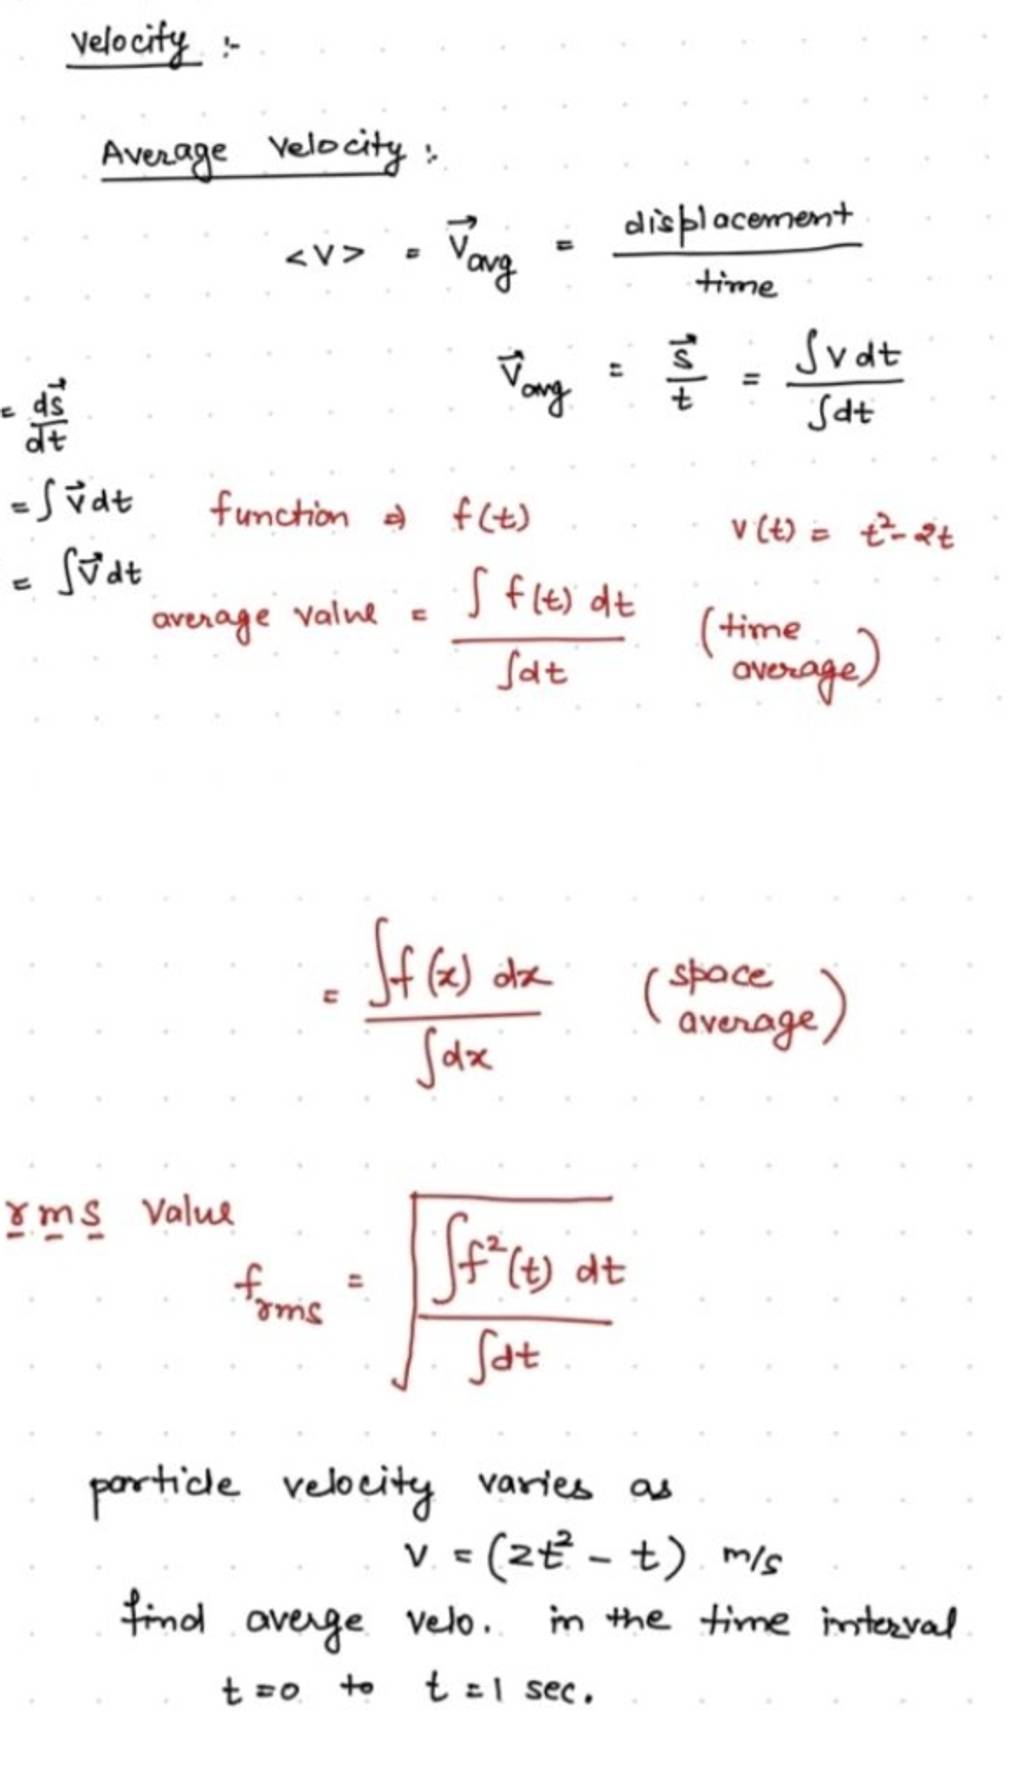 Velocity :-
Average Velocity :
<V> = V⃗avg = displacement / time
V⃗avg = s⃗/t = ∫V dt / ∫dt
= ds⃗/dt
= ∫V⃗dt
function ⇒ f(t)
V(t) = t²-2t
= ∫V⃗dt
average value = ∫f(t) dt / ∫dt (time average)
= ∫f(x) dx / ∫dx (space average)
rms value
frms = √(∫f²(t) dt / ∫dt)
particle velocity varies as
V = (2t² - t) m/s
find averge velo. in the time interval
t=0 to t=1 sec.